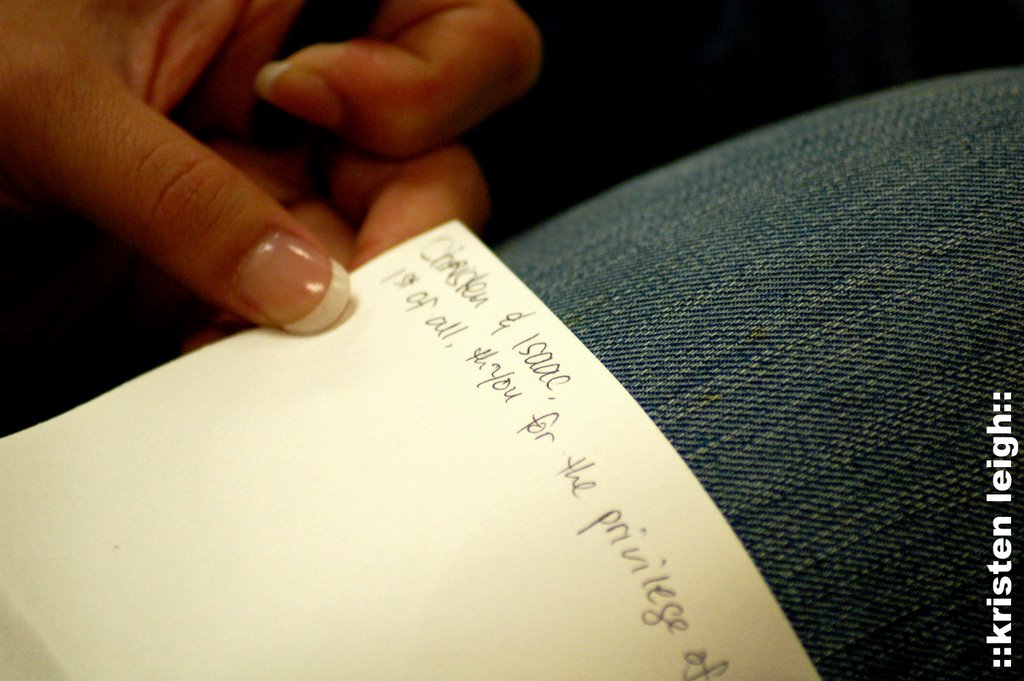 Christen & Isaac,
1st of all, th-you for the privilege of
::kristen leigh::